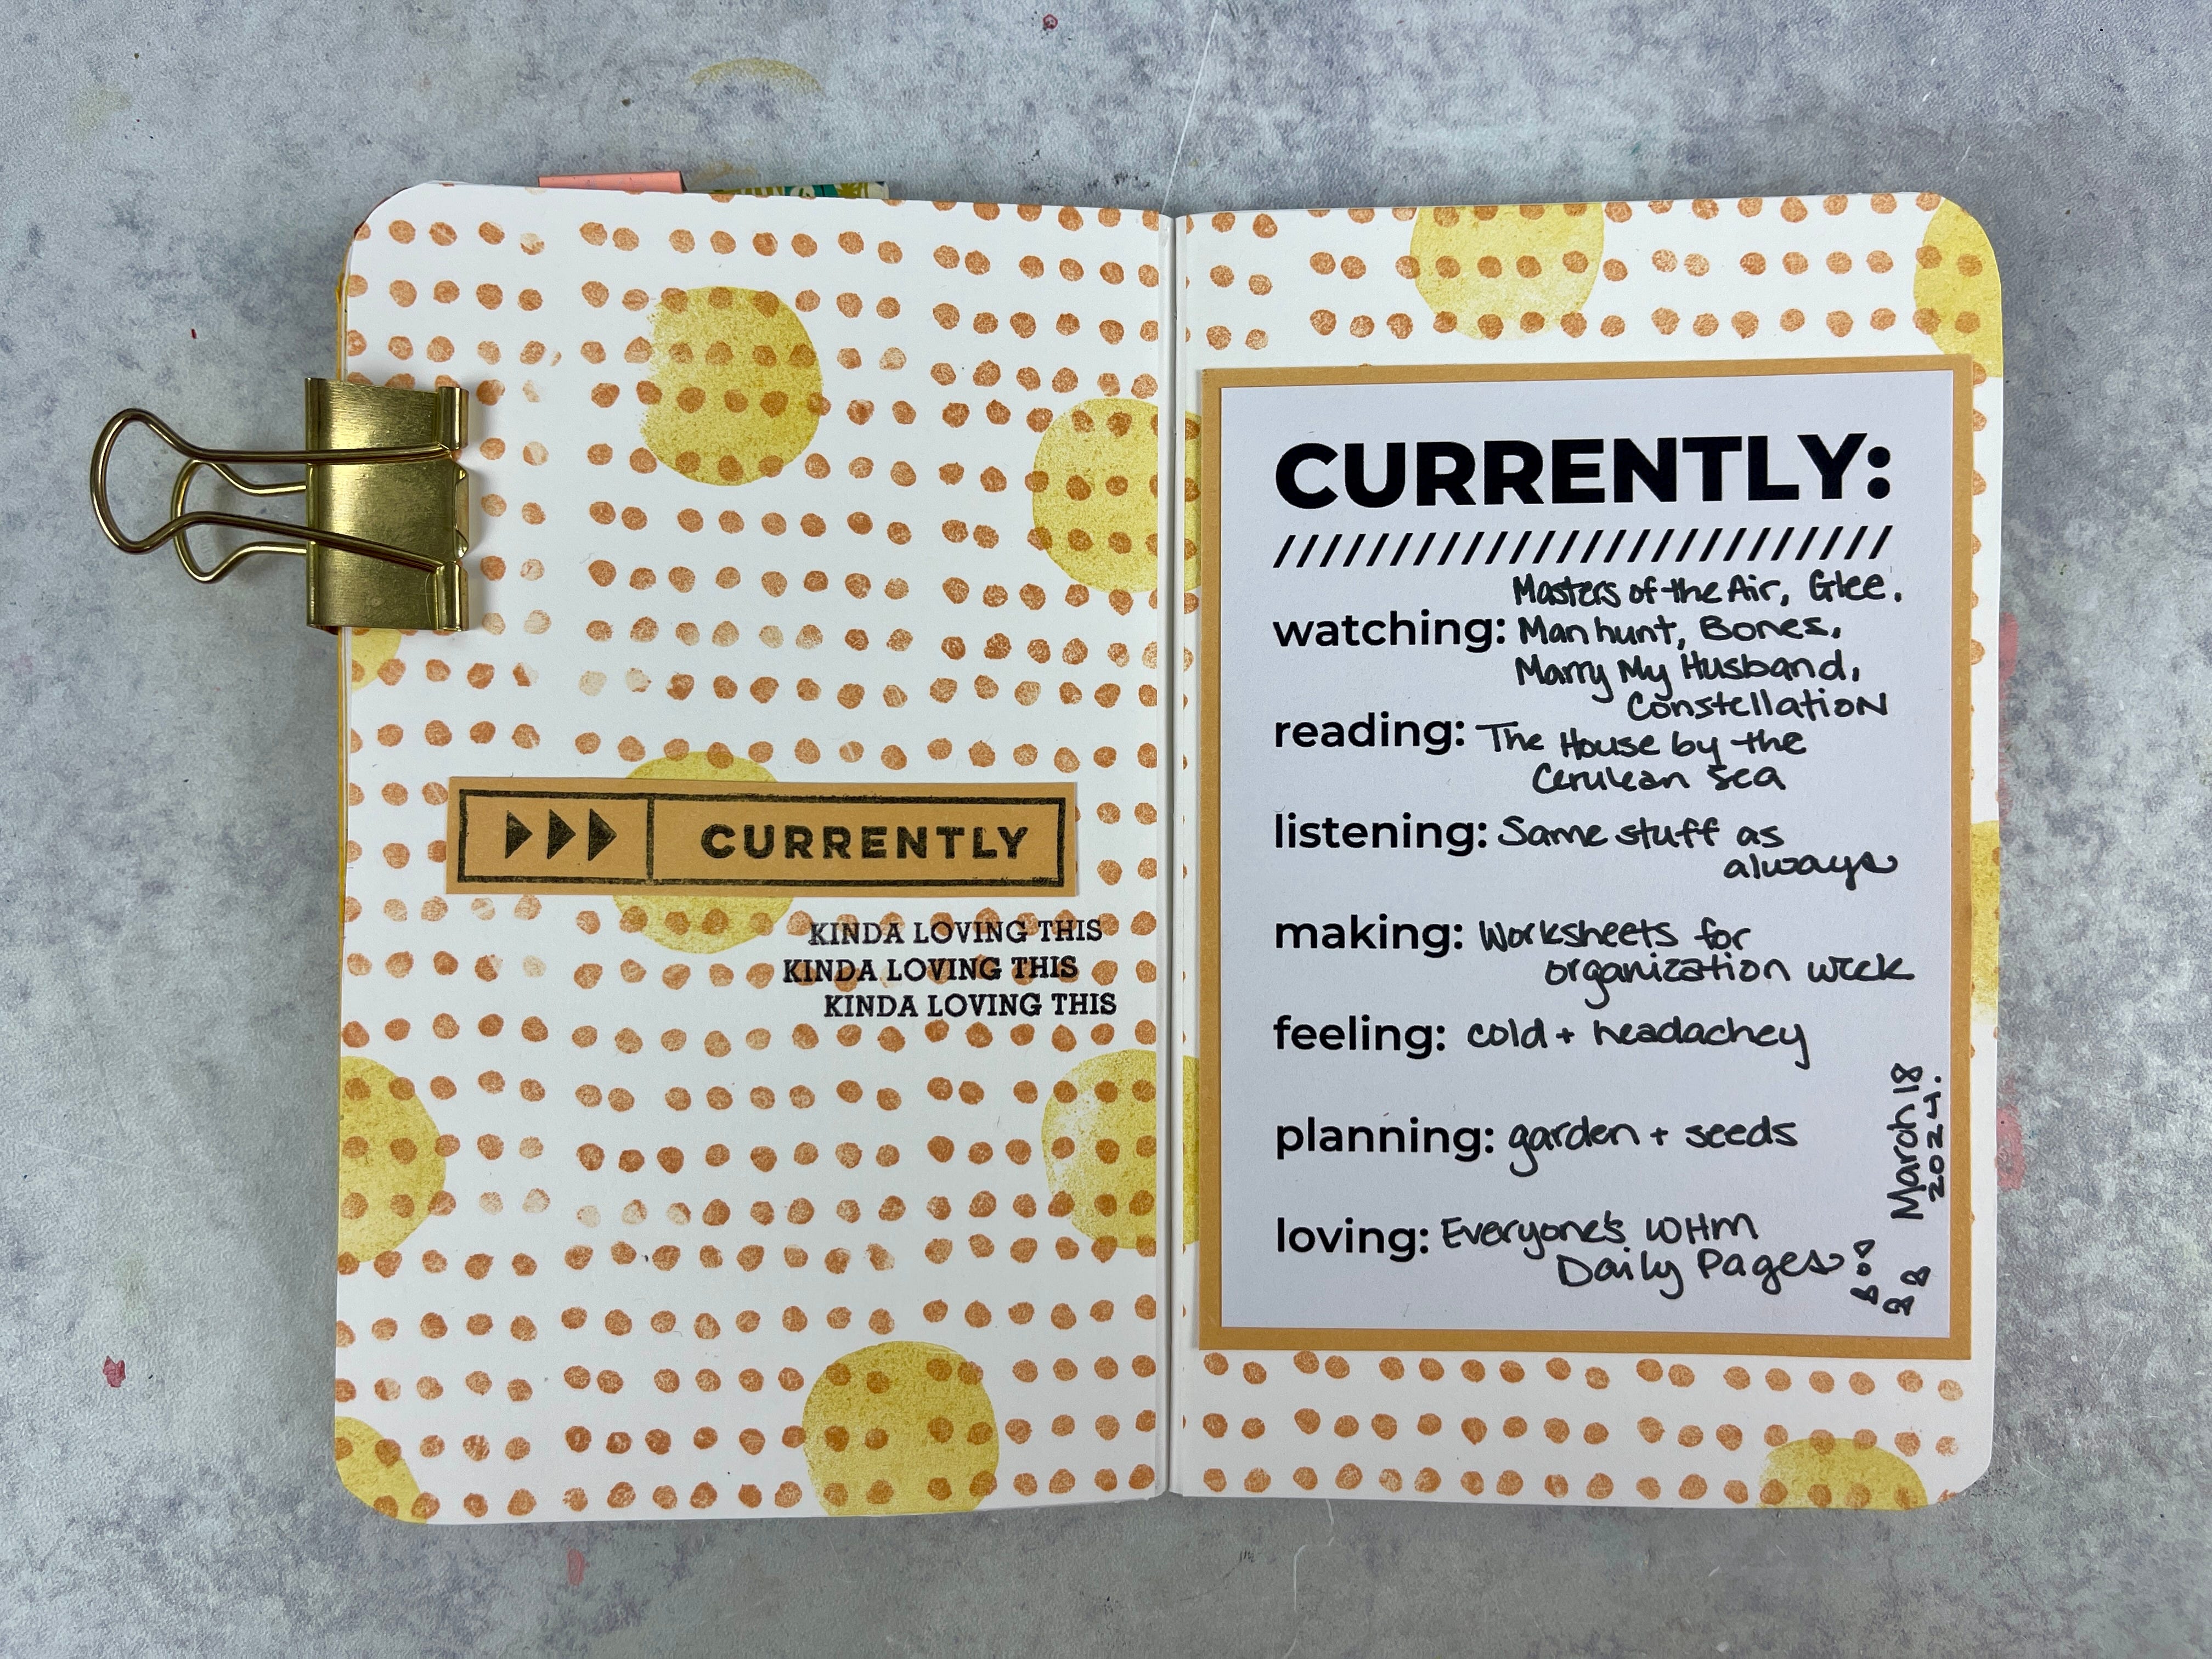 CURRENTLY
KINDA LOVING THIS
KINDA LOVING THIS
KINDA LOVING THIS
CURRENTLY:
Masters of the Air, Glee,
watching: Manhunt, Bones,
Marry My Husband,
Constellation
reading: The House by the
Cerulean Sea
listening: Same stuff as
always
making: Worksheets for
organization week
feeling: cold + headachey
planning: garden + seeds
loving: Everyone's WHM
Daily Pages
March 18
2024.